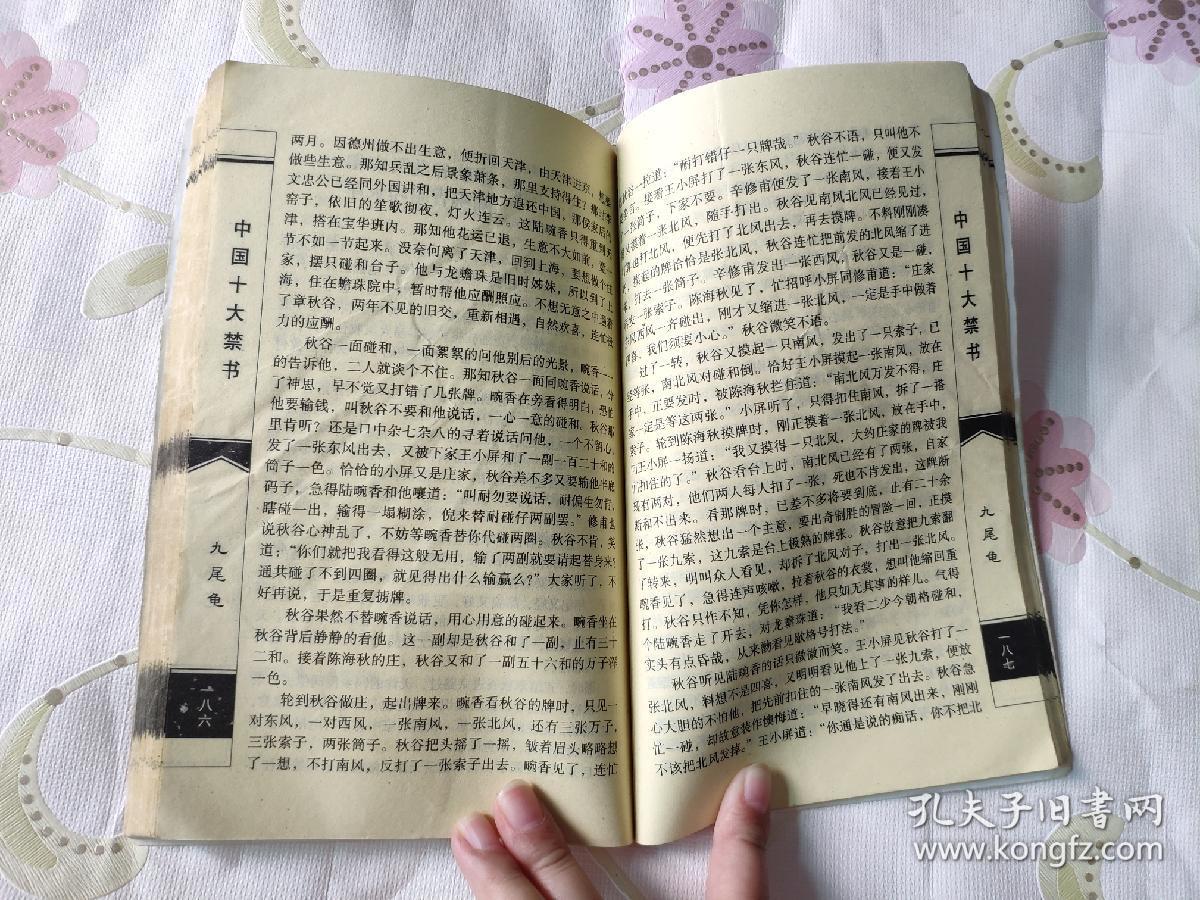 中国十大禁书
九尾龟
一八六
两月。因德州做不出生意，便折回天津，由天津进京，想要
做些生意。那知兵乱之后景象萧条，那里支持得住？
文忠公已经同外国讲和，把天津地方退还中国，那
窑子，依旧的笙歌彻夜，灯火连云。这陆畹香只得重到天
津，搭在宝华班内。那知他花运已退，生意不大如前，要一
节不如一节起来。没奈何离了天津，回到上海，要想做个住
家，摆只碰和台子。他与龙蟾珠是旧时姊妹，所以到了上
海，住在蟾珠院中，暂时帮他应酬照应。不想无意之中遇着
了章秋谷，两年不见的旧交，重新相遇，自然欢喜，连忙
力的应酬。
秋谷一面碰和，一面絮絮的问他别后的光景，畹香一一
的告诉他，二人就谈个不住。那知秋谷一面同畹香说话，分
了神思，早不觉又打错了几张牌。畹香在旁看得明白，恐怕
他要输钱，叫秋谷不要和他说话，一心一意的碰和。秋谷那
里肯听？还是口中杂七杂八的寻着说话问他，一个不留心，
发了一张东风出去，又被下家王小屏和了一副一百二十和的
筒子一色。恰恰的小屏又是庄家，秋谷差不多又要输他半底
码子，急得陆畹香和他嚷道：“叫耐勿要说话，耐偏生勿肯，
瞎碰一出，输得一塌糊涂，倪来替耐碰仔两副罢。”修甫也
说秋谷心神乱了，不妨等畹香替你代碰两圈。秋谷不肯，笑
道：“你们就把我看得这般无用，输了两副就要请起替身来？
通共碰了不到四圈，就见得出什么输赢么？”大家听了，不
好再说，于是重复掳牌。
秋谷果然不替畹香说话，用心用意的碰起来。畹香坐在
秋谷背后静静的看他。这一副却是秋谷和了一副，止有三十
二和。接着陈海秋的庄，秋谷又和了一副五十六和的万子浑
一色。
轮到秋谷做庄，起出牌来。畹香看秋谷的牌时，只见一
对东风，一对西风，一张南风，一张北风，还有三张万子，
三张索子，两张筒子。秋谷把头摇了一摇，皱着眉头略略想
了一想，不打南风，反打了一张索子出去。畹香见了，连忙
秋谷一拉道：“耐打错仔一只牌哉。”秋谷不语，只叫他不
接着王小屏打了一张东风，秋谷连忙一碰，便又发
一张筒子，下家不要。辛修甫便发了一张南风，接着王小
又摸着一张北风，随手打出。秋谷见南风北风已经见过，
也打北风，便先打了北风出去，再去摸牌。不料刚刚凑
摸起的牌恰恰是张北风，秋谷连忙把前发的北风缩了进
打去一张筒子。辛修甫发出一张西风，秋谷又是一碰，
一张索子。陈海秋见了，忙招呼小屏同修甫道：“庄家
风西风一齐碰出，刚才又缩进一张北风，一定是手中做着
我们须要小心。”秋谷微笑不语。
过了一转，秋谷又摸起一只南风，发出了一只索子，已
等张，南北风对碰和倒。恰好王小屏摸起一张南风，放在
中，正要发时，被陈海秋拦住道：“南北风万发不得，庄
家一定是等这两张。”小屏听了，只得扣住南风，拆了一搭
索子。轮到陈海秋摸牌时，刚正摸着一张北风，放在手中，
王小屏一扬道：“我又摸得一只北风，大约庄家的牌被我
扣住的了。”秋谷看台上时，南北风已经有了两张，自家
有两对，他们两人每人扣了一张，死也不肯发出，这牌断
和不出来。看那牌时，已差不多将要到底，止有二十余
张，秋谷猛然想出一个主意，要出奇制胜的冒险一回，正摸
了一张九索，这九索是台上极熟的牌张。秋谷故意把九索翻
了转来，明叫众人看见，却拆了北风对子，打出一张北风。
畹香见了，急得连声咳嗽，拉着秋谷的衣裳，想叫他缩回重
打。秋谷只作不知，凭你怎样，他只如无其事的样儿。气得
个陆畹香走了开去，对龙蟾珠道：“我看二少今朝格碰和，
实头有点昏哉，从来勿看见歇格号打法。”
秋谷听见陆畹香的话只微微而笑。王小屏见秋谷打了一
张北风，料想不是四喜，又明明看见他上了一张九索，便放
心大胆的不怕他，把先前扣住的一张南风发了出去。秋谷急
忙一碰，却故意装作懊悔道：“早晓得还有南风出来，刚刚
不该把北风发掉。”王小屏道：“你通是说的痴话，你不把北
中国十大禁书
九尾龟
一八七
孔夫子旧书网
www.kongfz.com